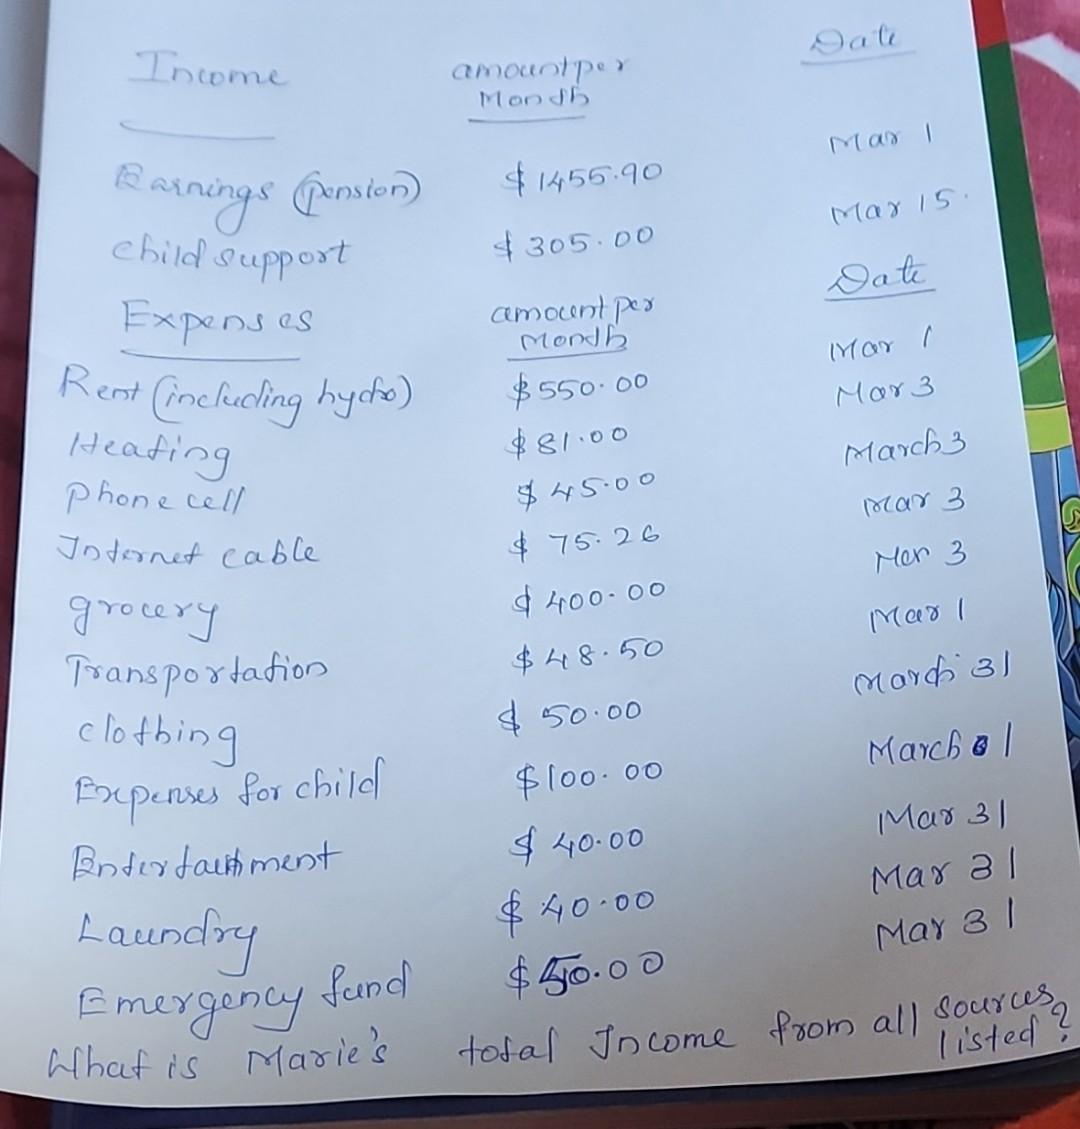 Income amount per Date
Month
Earnings (pension) $ 1455.90 Mar 1
child support $ 305.00 Mar 15.
Expenses amount per Date
Month
Rent (including hydro) $ 550.00 Mar 1
Heating $ 81.00 Mar 3
Phone cell $ 45.00 March 3
Internet cable $ 75.26 Mar 3
grocery $ 400.00 Mar 3
Transportation $ 48.50 Mar 1
clothing $ 50.00 March 31
Expenses for child $100.00 March 1
Entertainment $ 40.00 Mar 31
Laundry $ 40.00 Mar 31
Emergency fund $ 50.00 Mar 31
What is Marie's total Income from all sources
listed?